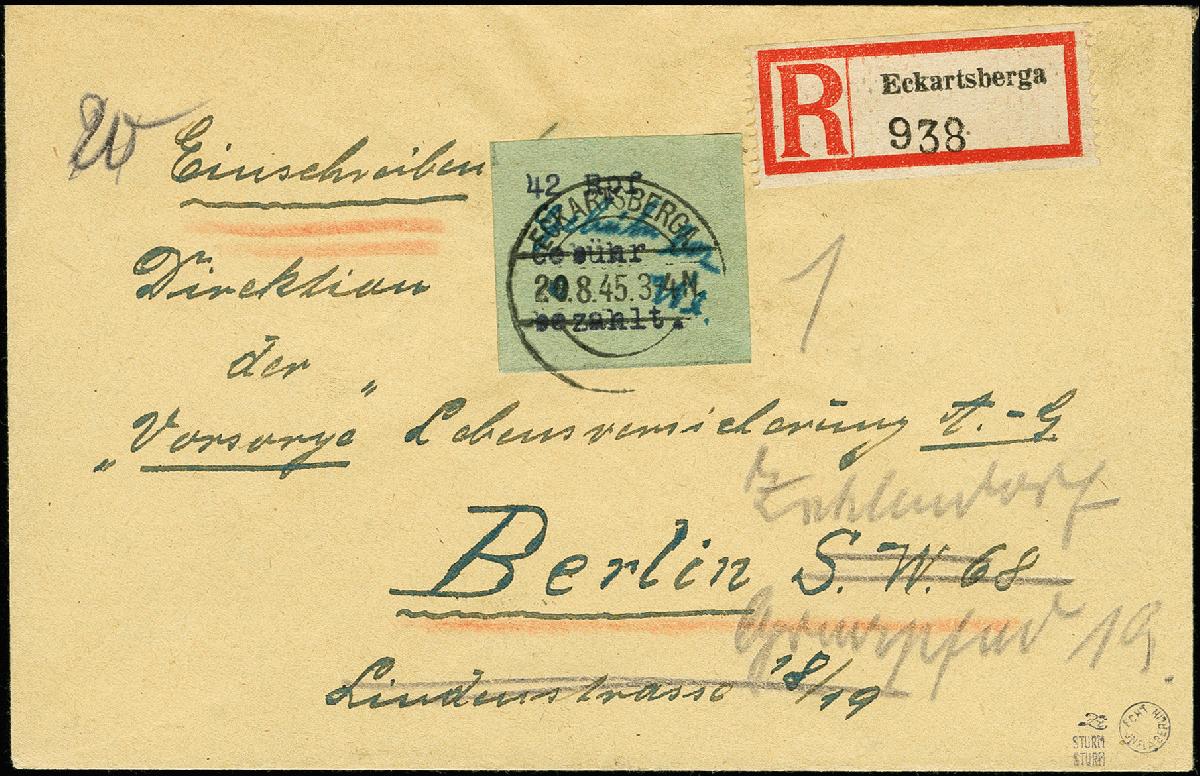 R Eckartsberga
938
20
Einschreiben
42 Rpf
Gebühr
bezahlt.
ECKARTSBERGA
20.8.45.3-4N.
1
Direktion
der
„Vorsorge“ Lebensversicherung A.-G
Zehlendorf
Berlin S.W. 68
19
Lindenstrasse 18/19
ECHT
STURM
STURM